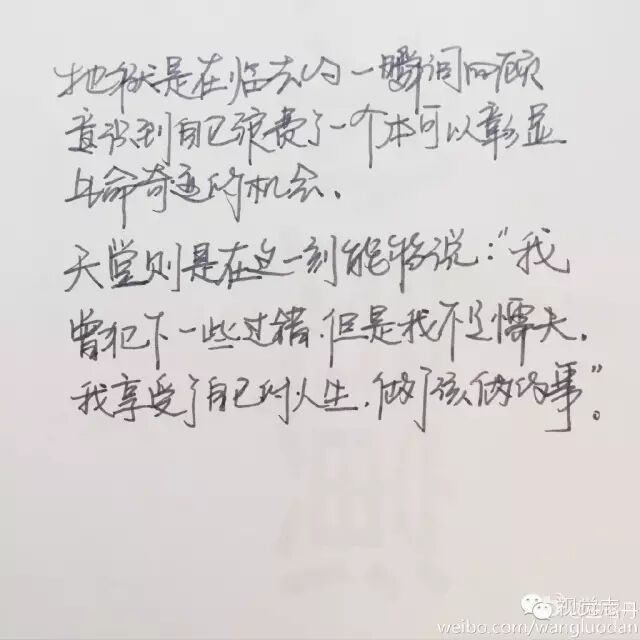 地狱是在临去的一瞬间回顾
意识到自己浪费了一个本可以彰显
生命奇迹的机会、
天堂则是在这一刻能够说：“我
曾犯下一些过错.但是我不是懦夫.
我享受了自己的人生.做了该做的事”。
视觉志
丹
weibo.com/wangluodan